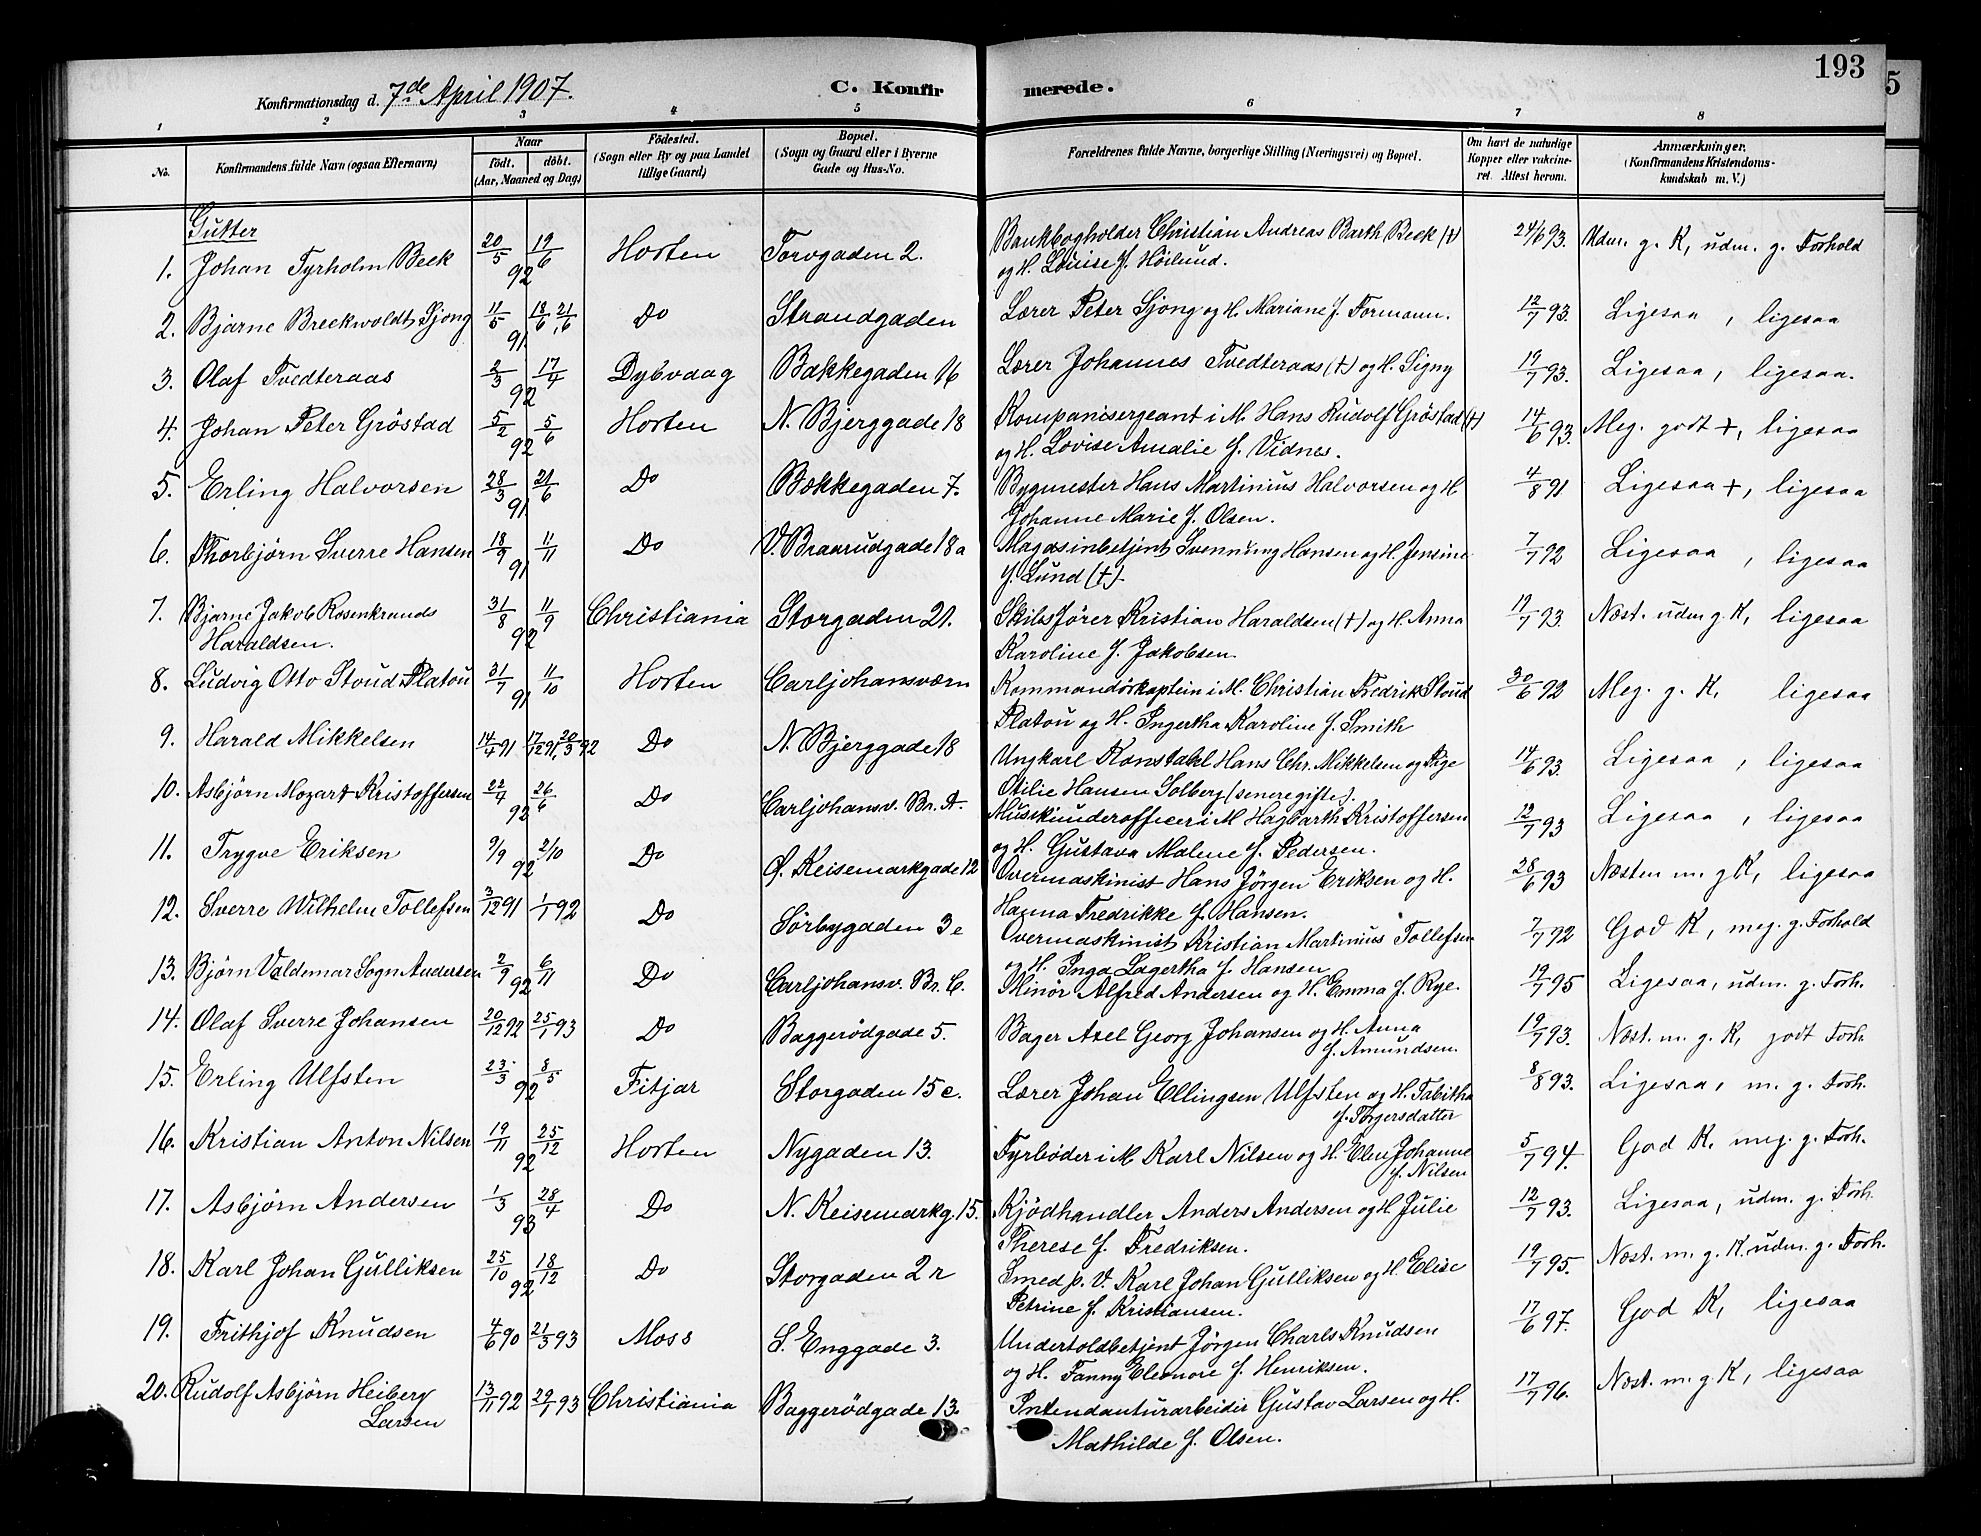 193
5
Konfirmationsdag d. 7de April 1907. C. Konfirmerede.
1 2 3 4 5 6 7 8
No. Konfirmandens fulde Navn (ogsaa Efternavn) Naar födt. döbt. (Aar, Maaned og Dag) Födested. (Sogn eller By og paa Landet tillige Gaard) Bopæl. (Sogn og Gaard eller i Byerne Gade og Hus-No. Forældrenes fulde Navne, borgerlige Stilling (Næringsvei) og Bopæl. Om havt de naturlige Kopper eller vakcineret. Attest herom. Anmærkninger. (Konfirmandens Kristendomskundskab m. V.)
Gutter
1. Johan Tyrholm Beck 20/5 19/6 92 Horten Torvgaden 2. Bankbogholder Christian Andreas Barth Beck (+) 24/6 93. Udm. g. K, udm. g. Forhold
og H. Louise f. Höilund.
2. Bjarne Breckwoldt Sjong 11/5 18/6, 21/6 91 Do Strandgaden Lærer Peter Sjong og H. Mariane f. Formann. 12/7 93. Ligesaa, ligesaa
3. Olaf Tvedteraas 2/3 17/4 92 Dybvaag Bakkegaden 16 Lærer Johannes Tvedteraas (+) og H. Signy 19/7 93. Ligesaa, ligesaa.
4. Johan Peter Gröstad 5/2 5/6 92 Horten N. Bjerggade 18 Kompanisergeant i M. Hans Rudolf Gröstad (+) 14/6 93. Meg. godt +, ligesaa
og H. Lovise Amalie f. Vidnes.
5. Erling Halvorsen 28/3 21/6 91 Do Bækkegaden 7. Bygmester Hans Martinius Halvorsen og H 4/8 91 Ligesaa +, ligesaa
Johanne Marie f. Olsen.
6. Thorbjörn Sverre Hansen 18/9 11/11 91 Do V. Braarudgade 18a Magasinbetjent Svennung Hansen og H. Jensine 7/7 92 Ligesaa, ligesaa
f. Lund (+)
7. Bjarne Jakob Rosenkrands 31/8 11/9 92 Christiania Storgaden 21. Skibsförer Kristian Haraldsen (+) og H. Anna 19/7 93. Næst. udm g. K, ligesaa
Haraldsen. Karoline f. Jakobsen.
8. Ludvig Otto Stoud Platou 31/7 11/10 91 Horten Carljohansværn Kommandörkaptein i M. Christian Fredrik Stoud 30/6 92 Meg. g. K, ligesaa
Platou og H. Ingertha Karoline f. Smith
9. Harald Mikkelsen 14/4 91 17/12 91, 20/3 92 Do N. Bjerggade 18 Ungkarl Konstabel Hans Chr. Mikkelsen og Pige 14/6 93. Ligesaa, ligesaa
Otilie Hansen Solberg (senere gifte).
10. Asbjörn Mozart Kristoffersen 22/4 26/6 92 Do Carljohansv. Br. A. Musikunderofficer i M Hagbarth Kristoffersen 12/7 93 Ligesaa, ligesaa
og H. Gustava Malene f. Pedersen.
11. Trygve Eriksen 9/9 2/10 92 Do Ø. Keisemarkgade 12 Overmaskinist Hans Jörgen Eriksen og H. 28/6 93 Næsten m. g K, ligesaa
Hanna Fredrikke f. Hansen.
12. Sverre Wilhelm Tollefsen 3/12 91 1/1 92 Do Sörbygaden 3e Overmaskinist Kristian Martinius Tollefsen 7/7 92 God K, meg. g. Forhold
og H. Inga Lagertha f. Hansen
13. Björn Valdemar Sogn Andersen 2/9 6/11 92 Do Carljohansv. Br. C. Minör Alfred Andersen og H. Emma f. Rye. 19/7 95 Ligesaa, udm. g. Forh.
14. Olaf Sverre Johansen 20/12 92 25/1 93 Do Baggerödgade 5. Bager Axel Georg Johansen og H. Anna 19/7 93. Næst. m. g. K, godt Forh.
f. Amundsen.
15. Erling Ulfsten 23/3 8/5 92 Fitjar Storgaden 15 c. Lærer Johan Ellingsen Ulfsten og H. Tabitha 8/8 93. Ligesaa, m. g. Forh.
f. Torgersdatter
16. Kristian Anton Nilsen 19/11 25/12 92 Horten Nygaden 13. Fyrböder i M Karl Nilsen og H. Elen Johanne 5/7 94. God K, meg. g. Forh.
f. Nilsen
17. Asbjörn Andersen 1/3 28/4 93 Do N. Keisemarkg. 15. Kjödhandler Anders Andersen og H Julie 12/7 93. Ligesaa, udm. g. Forh.
Therese f. Fredriksen.
18. Karl Johan Gulliksen 25/10 18/12 92 Do Storgaden 2 r Smed p. V. Karl Johan Gulliksen og H Elise 19/7 95. Næst. m. g. K. udm. g. Forh.
Petrine f. Kristiansen.
19. Frithjof Knudsen 4/6 90 21/3 93 Moss S. Enggade 3. Undertoldbetjent Jörgen Charls Knudsen 17/6 97. God K, ligesaa
og H. Fanny Eleonore f. Henriksen.
20. Rudolf Asbjörn Heiberg 13/11 92 29/1 93 Christiania Baggerödgade 13. Intendanturarbeider Gustav Larsen og H. 17/7 96. Næst. m. g. K, ligesaa
Larsen Mathilde f. Olsen.